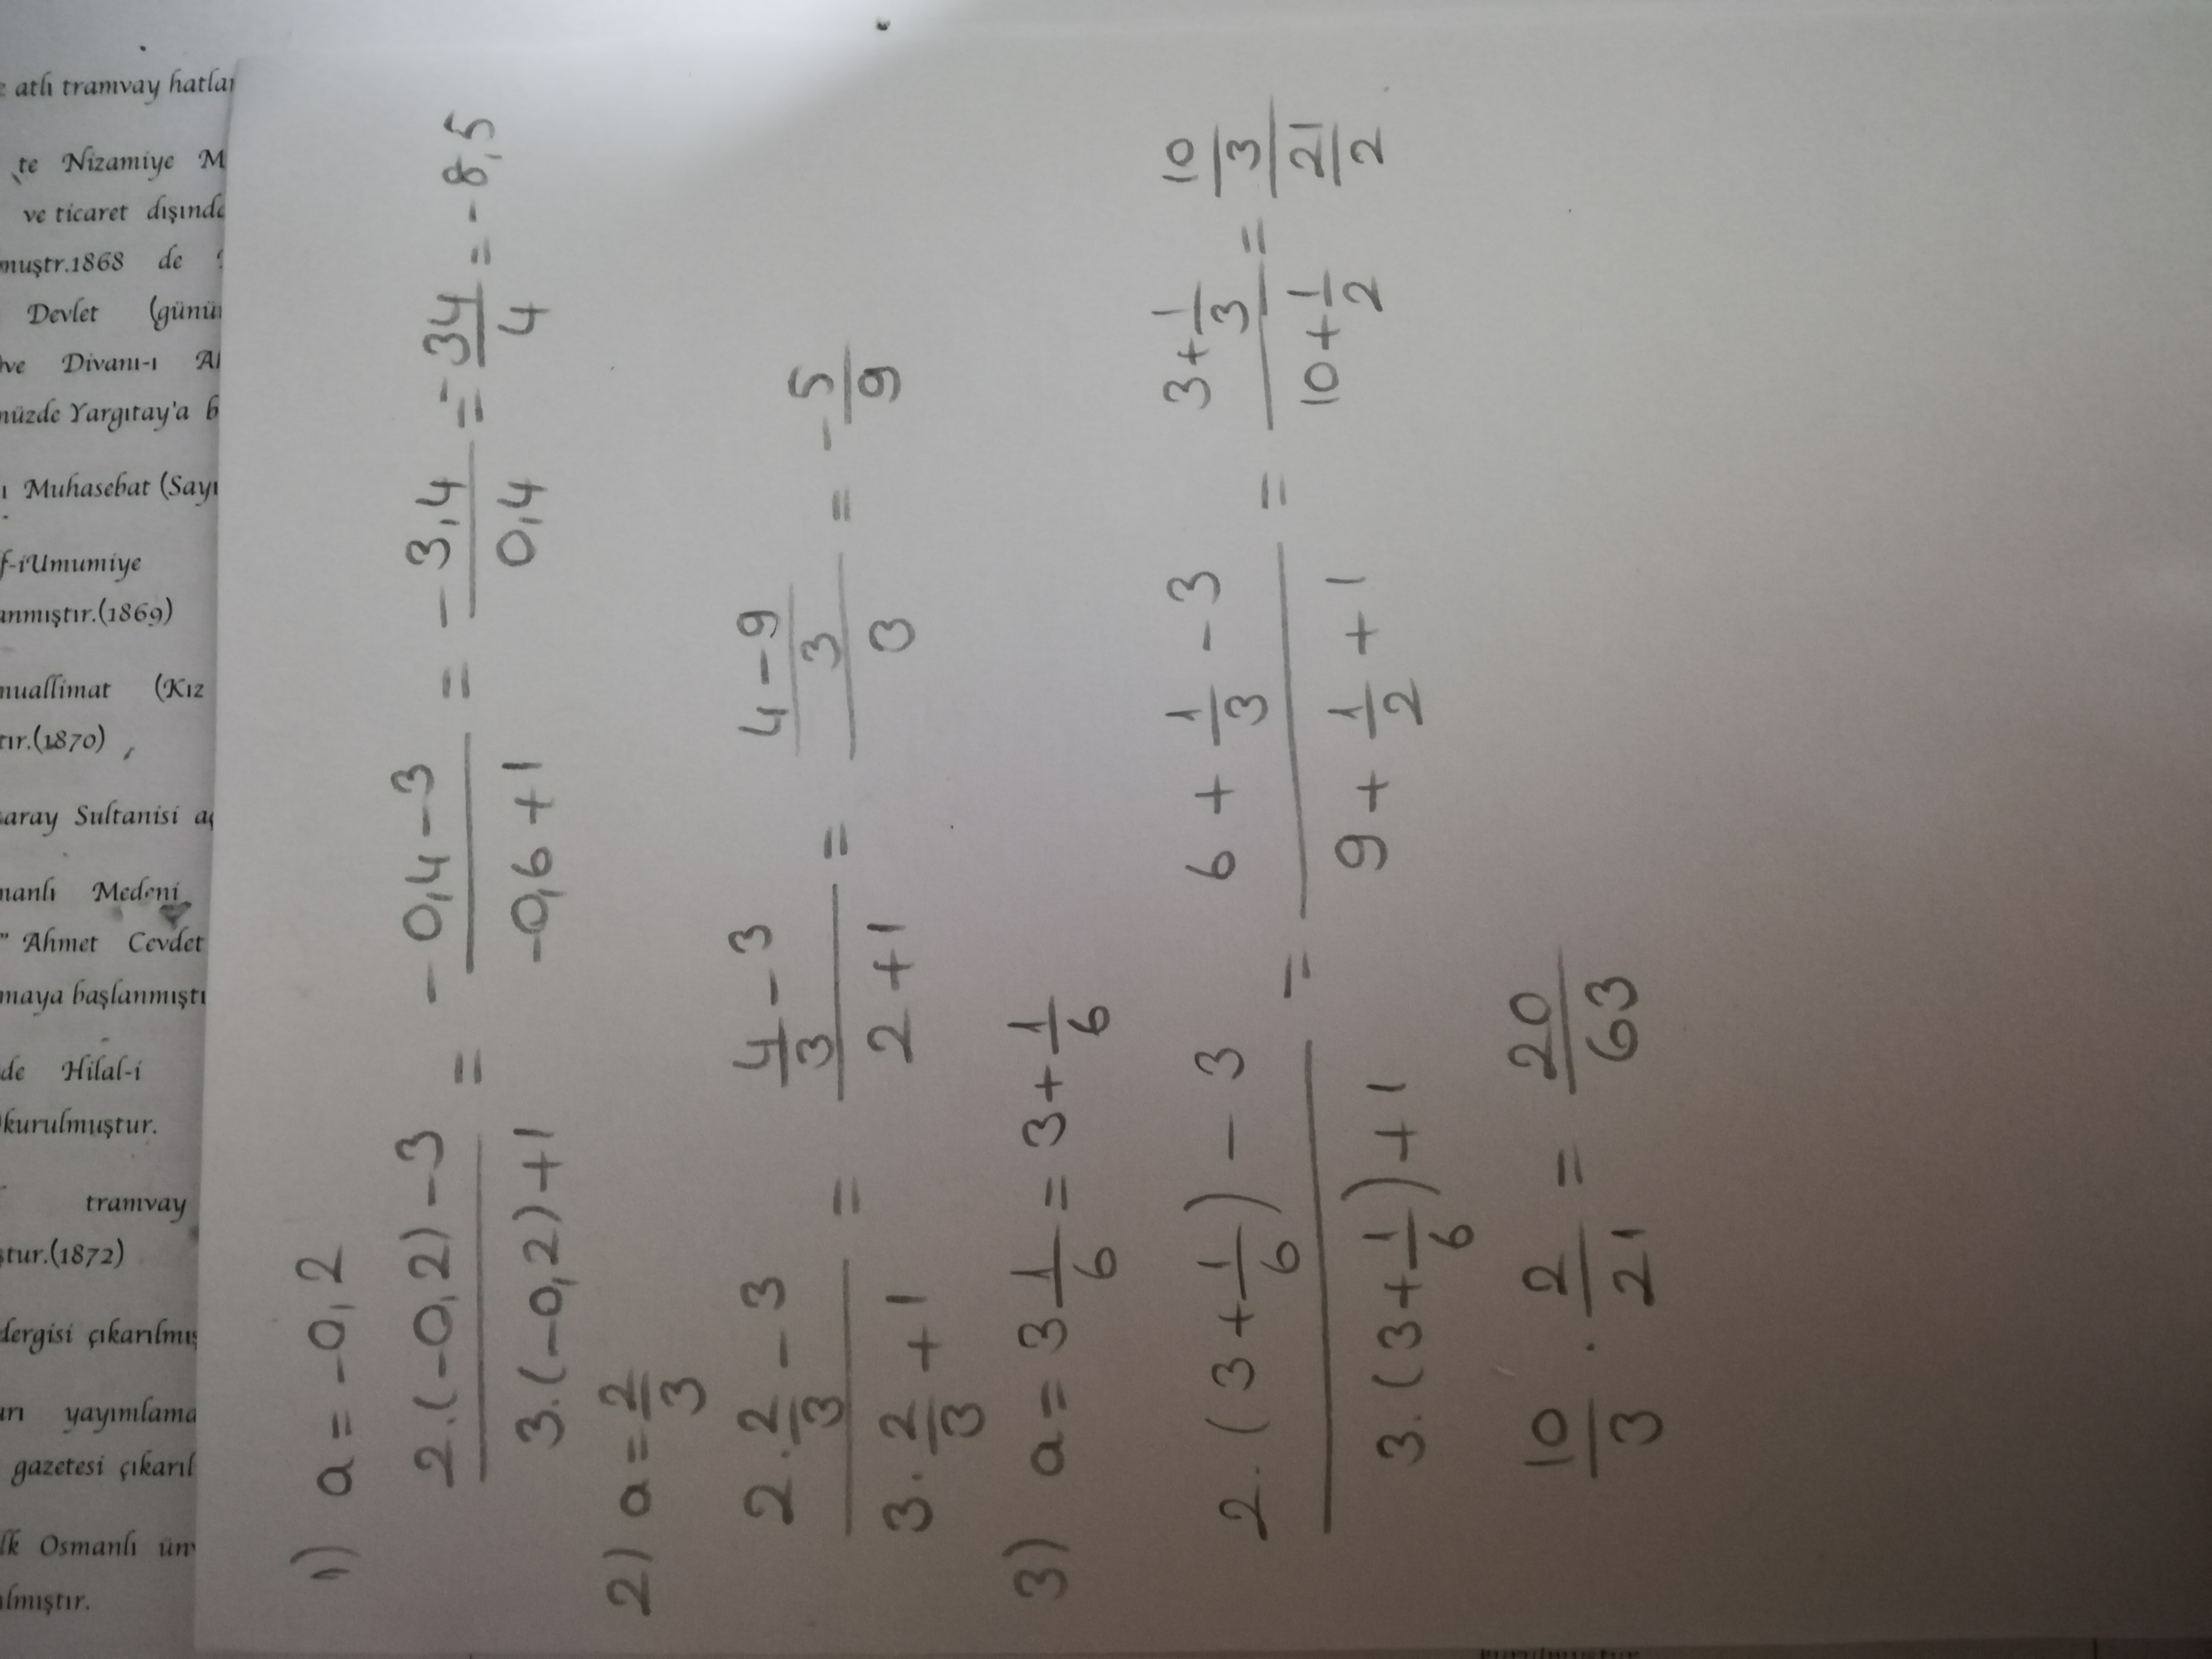 e atlı tramvay hatlar
te Nizamiye M
ve ticaret dışında
muştr.1868 de
Devlet (günü
ve Divanı-ı Al
nüzde Yargıtay'a b
ı Muhasebat (Sayı
f-iUmumiye
anmıştır.(1869)
nuallimat (Kız
tır.(1870)
saray Sultanisi aç
manlı Medeni
" Ahmet Cevdet
maya başlanmıştı
de Hilal-i
kurulmuştur.
tramvay
ştur.(1872)
dergisi çıkarılmış
arı yayımlama
gazetesi çıkarıl
lk Osmanlı ün
ılmıştır.
1) a = -0,2
2.(-0,2)-3 / 3.(-0,2)+1 = -0,4-3 / -0,6+1 = -3,4 / 0,4 = -34/4 = -8,5
2) a = 2/3
2.2/3-3 / 3.2/3+1 = 4/3-3 / 2+1 = 4-9/3 / 3 = -5/9
3) a = 3 1/6 = 3+1/6
2.(3+1/6)-3 / 3.(3+1/6)+1 = 6+1/3-3 / 9+1/2+1 = 3+1/3 / 10+1/2 = 10/3 / 21/2
10/3 . 2/21 = 20/63